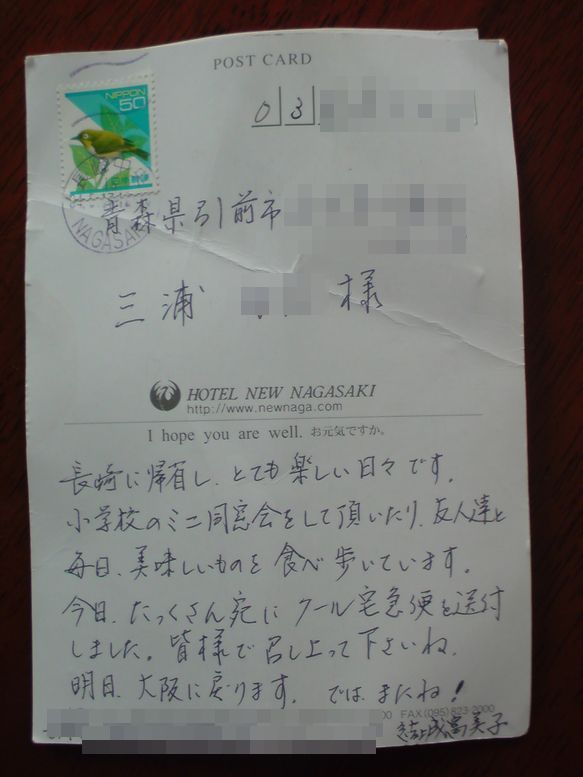 POST CARD
NIPPON
50
NAGASAKI
03
青森県引前市
三浦 様
HOTEL NEW NAGASAKI
http://www.newnaga.com
I hope you are well. お元気ですか。
長崎に帰省し、とても楽しい日々です。
小学校のミニ同窓会をして頂いたり、友人達と
毎日、美味しいものを食べ歩いています。
今日、たっくさん宛にクール宅急便を送付
しました。皆様で召し上って下さいね。
明日、大阪に戻ります。では、またね!
00 FAX(095)823-2000
結城富美子